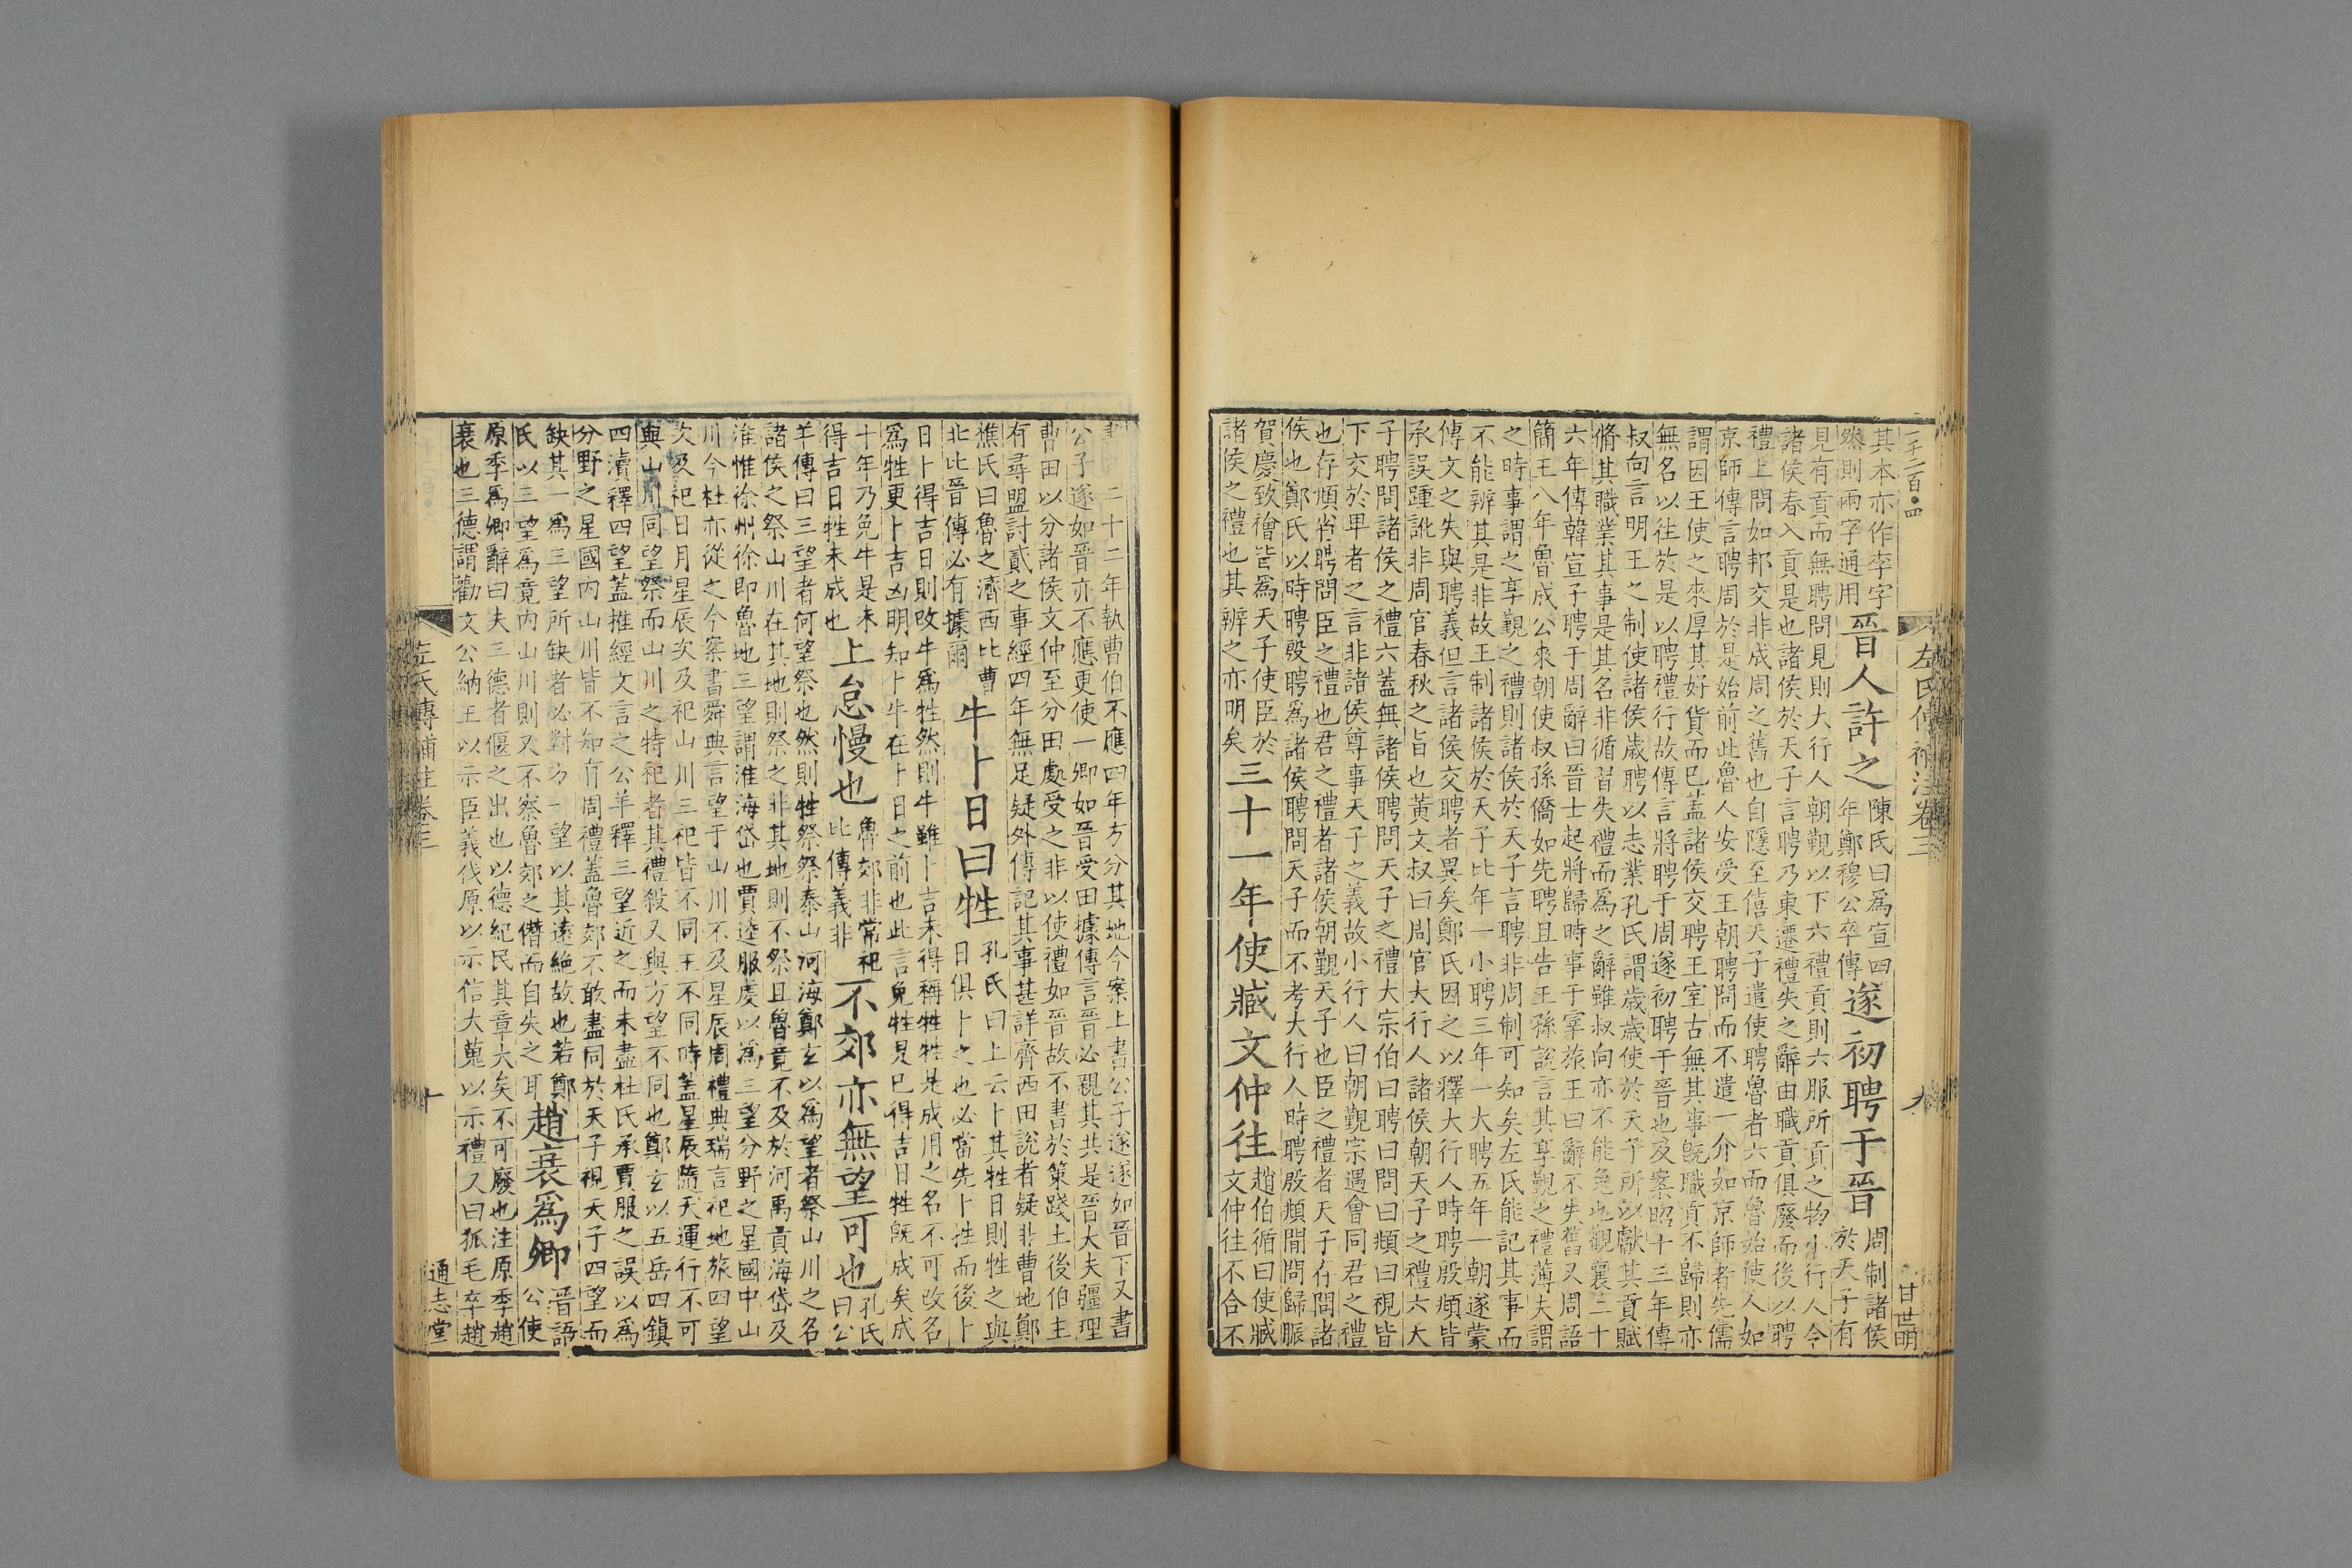 一千二百四
左氏傳補注卷三
九
甘世明
其本亦作李字
然則兩字通用
晉人許之
陳氏曰爲宣四
年鄭穆公卒傳
遂初聘于晉
周制諸侯
於天子有
見有貢而無聘問見則大行人朝覲以下六禮貢則六服所貢之物小行人令
諸侯春入貢是也諸侯於天子言聘乃東遷禮失之辭由職貢俱廢而後以聘
禮上問如邦交非成周之舊也自隱至僖天子遣使聘魯者六而魯始使人如
京師傳言聘周於是始前此魯人安受王朝聘問而不遣一介如京師者先儒
謂因王使之來厚其好貨而已蓋諸侯交聘王室古無其事旣職貢不歸則亦
無名以往於是以聘禮行故傳言將聘于周遂初聘于晉也及案昭十三年傳
叔向言明王之制使諸侯歲聘以志業孔氏謂歲歲使於天子所以獻其貢賦
脩其職業其事是其名非循習失禮而爲之辭雖叔向亦不能免也觀襄二十
六年傳韓宣子聘于周辭曰晉士起將歸時事于宰旅王曰辭不失舊又周語
簡王八年魯成公來朝使叔孫僑如先聘且告王孫說言其享覲之禮薄夫謂
之時事謂之享覲之禮則諸侯於天子言聘非周制可知矣左氏能記其事而
不能辨其是非故王制諸侯於天子比年一小聘三年一大聘五年一朝遂蒙
傳文之失與聘義但言諸侯交聘者異矣鄭氏因之以釋大行人時聘殷頫皆
承誤踵訛非周官春秋之旨也黃文叔曰周官大行人諸侯朝天子之禮六大
子聘問諸侯之禮六蓋無諸侯聘問天子之禮大宗伯曰聘曰問曰頫曰視皆
下交於卑者之言非諸侯尊事天子之義故小行人曰朝覲宗遇會同君之禮
也存頫省聘問臣之禮也君之禮者諸侯朝覲天子也臣之禮者天子存問諸
侯也鄭氏以時聘殷聘爲諸侯聘問天子而不考大行人時聘殷頫間問歸脤
賀慶致禬皆爲天子使臣於
諸侯之禮也其辨之亦明矣
三十一年使臧文仲往
趙伯循曰使臧
文仲往不合不
書二十二年執曹伯不應四年方分其地今案上書公子遂遂如晉下又書
公子遂如晉亦不應更使一卿如晉受田據傳言晉必親其共是晉大夫疆理
曹田以分諸侯文仲至分田處受之非以使禮如晉故不書於策踐土後伯主
有尋盟討貳之事經四年無足疑外傳記其事甚詳齊西田說者疑非曹地鄭
樵氏曰魯之濟西比曹
北比晉傳必有據爾
牛卜日曰牲
孔氏曰上云卜其牲日則牲之與
日俱卜之也必當先卜牲而後卜
日卜得吉日則改牛爲牲然則牛雖卜吉未得稱牲牲是成用之名不可改名
爲牲更卜吉凶明知卜牛在卜日之前也此言免牲是已得吉日牲旣成矣成
十年乃免牛是未
得吉日牲未成也
上怠慢也
魯郊非常祀
比傳義非
不郊亦無望可也
孔氏
曰公
羊傳曰三望者何望祭也然則牲祭祭泰山河海鄭玄以爲望者祭山川之名
諸侯之祭山川在其地則祭之非其地則不祭且魯竟不及於河禹貢海岱及
淮惟徐州徐即魯地三望謂淮海岱也賈逵服虔以爲三望分野之星國中山
川今杜亦從之今案書舜典言望于山川不及星辰周禮典瑞言祀地旅四望
次及祀日月星辰次及祀山川三祀皆不同王不同時蓋星辰隨天運行不可
與山川同望祭而山川之特祀者其禮殺又與方望不同也鄭玄以五岳四鎮
四瀆釋四望蓋推經文言之公羊釋三望近之而未盡杜氏承賈服之誤以爲
分野之星國內山川皆不知有周禮蓋魯郊不敢盡同於天子視天子四望而
缺其一爲三望所缺者必對方一望以其遠絕故也若鄭
氏以三望爲竟內山川則又不察魯郊之僭而自失之耳
趙衰爲卿
晉語
公使
原季爲卿辭曰夫三德者偃之出也以德紀民其章大矣不可廢也注原季趙
衰也三德謂勸文公納王以示臣義伐原以示信大蒐以示禮又曰狐毛卒趙
左氏傳補注卷三
十
通志堂